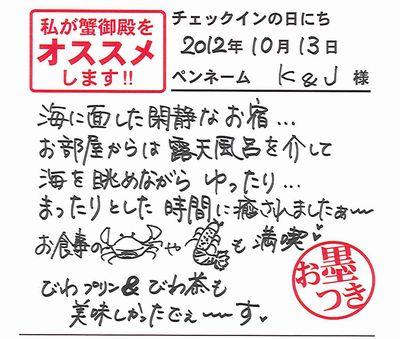 私が蟹御殿を
オススメ
します!!
チェックインの日にち
2012年10月13日
ペンネーム K&J 様
海に面した閑静なお宿...
お部屋からは露天風呂を介して
海を眺めながら ゆったり...
まったりとした時間に癒されましたぁ〜
お食事の や も満喫♥
びわプリン&びわ茶も
美味しかったでぇ〜す♥
お墨つき